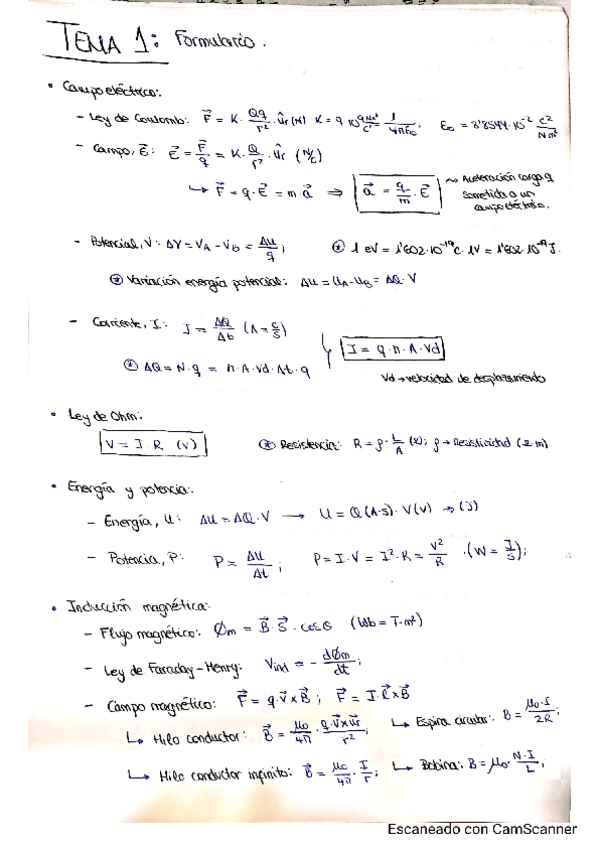 TEMA 1: Formulario.
• Campo eléctrico:
- Ley de Coulomb: F⃗ = K · Qq/r² · ûr (N) K = 9·10⁹ Nm²/C² = 1/4πε₀; ε₀ = 8'8544·10⁻² C²/Nm²
- Campo, E⃗: E⃗ = F⃗/q = K · Q/r² · ûr (N/C)
↳ F⃗ = q · E⃗ = m · a⃗ ⇒ a⃗ = q/m · E⃗ ~> Aceleración carga q sometida a un campo eléctrico.
- Potencial, V: ΔV = VA - VB = ΔU/q; * 1 eV = 1'602·10⁻¹⁹ C · 1V = 1'602·10⁻¹⁹ J.
* Variación energía potencial: ΔU = UA - UB = ΔQ · V
- Corriente, I: I = ΔQ/Δt (A = C/S)
I = q · n · A · Vd
* ΔQ = N · q = n · A · Vd · Δt · q
Vd → velocidad de desplazamiento
• Ley de Ohm:
V = I · R (V) * Resistencia: R = ρ · L/A (Ω); ρ → Resistividad (Ω m)
• Energía y potencia:
- Energía, U: ΔU = ΔQ · V → U = Q (A·s) · V(V) → (J)
- Potencia, P: P = ΔU/Δt; P = I · V = I² · R = V²/R · (W = J/S);
• Inducción magnética:
- Flujo magnético: Øm = B⃗ · S⃗ · cos θ (Wb = T·m²)
- Ley de Faraday-Henry: Vind = - dØm/dt;
- Campo magnético: F⃗ = q · v⃗ x B⃗; F⃗ = I · l⃗ x B⃗
↳ Hilo conductor: B⃗ = μ₀/4π · q·v⃗xu⃗r/r²; ↳ Espira circular: B = μ₀·I/2R;
↳ Hilo conductor infinito: B⃗ = μ₀/4π · I/r; ↳ Bobina: B = μ₀ · N·I/L;
Escaneado con CamScanner